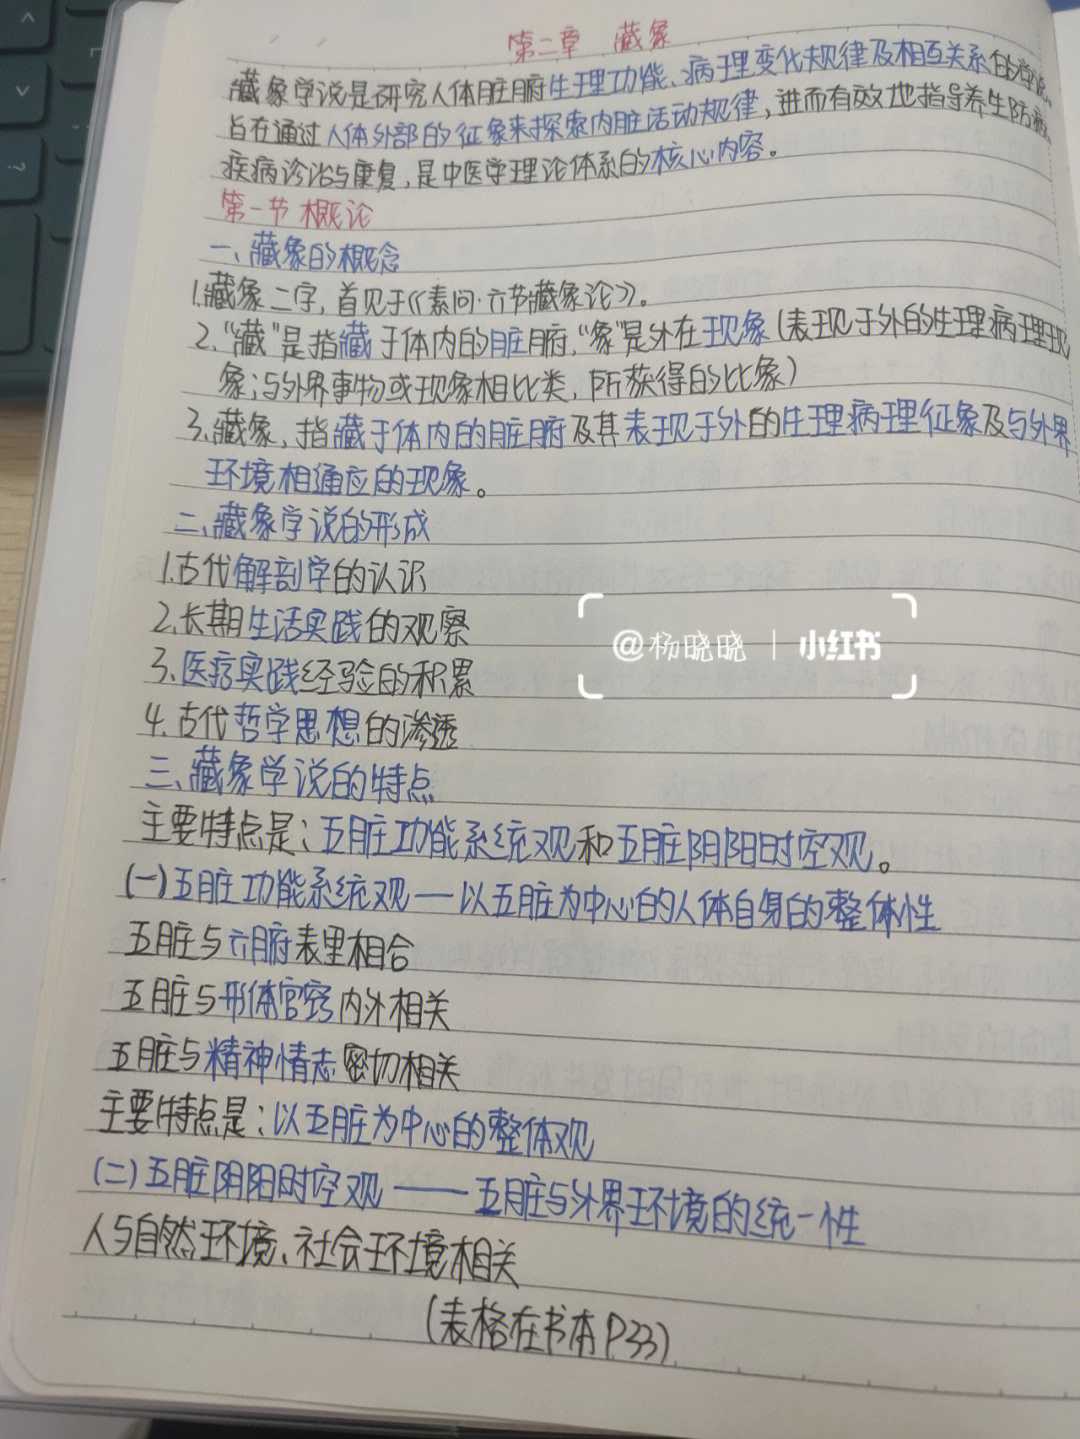 第二章 藏象
藏象学说是研究人体脏腑生理功能、病理变化规律及相互关系的学说,
旨在通过人体外部的征象来探索内脏活动规律,进而有效地指导养生防病、
疾病诊治与康复,是中医学理论体系的核心内容。
第一节 概论
一、藏象的概念
1.藏象二字,首见于《素问·六节藏象论》。
2.“藏”是指藏于体内的脏腑,“象”是外在现象(表现于外的生理病理现
象;与外界事物或现象相比类,所获得的比象)
3.藏象,指藏于体内的脏腑及其表现于外的生理病理征象及与外界
环境相通应的现象。
二、藏象学说的形成
1.古代解剖学的认识
2.长期生活实践的观察
3.医疗实践经验的积累
4.古代哲学思想的渗透
三、藏象学说的特点
主要特点是:五脏功能系统观和五脏阴阳时空观。
(一)五脏功能系统观—以五脏为中心的人体自身的整体性
五脏与六腑表里相合
五脏与形体官窍内外相关
五脏与精神情志密切相关
主要特点是:以五脏为中心的整体观
(二)五脏阴阳时空观——五脏与外界环境的统一性
人与自然环境、社会环境相关
(表格在书本P33)
@杨晓晓 | 小红书